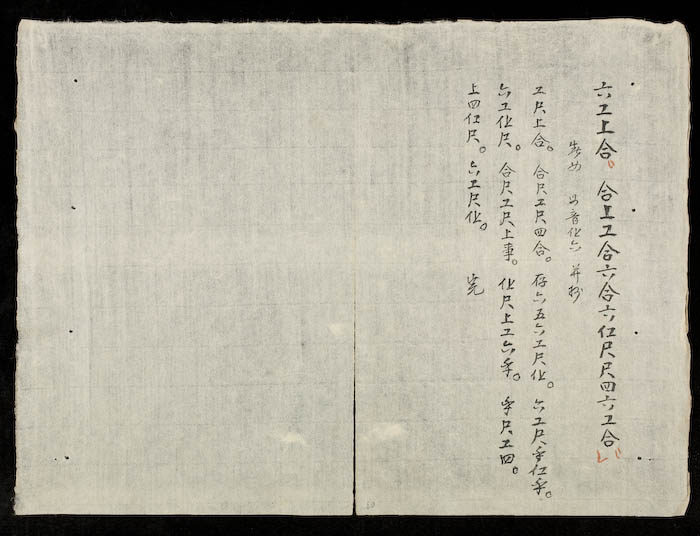 六工上合。合上工合六合六仜尺尺四六工合
出音仩六 并抄
工尺上合。合尺工尺四合。存六五六工尺仩。六工尺乎仜乎。
六工仩尺。合尺工尺上事。仩尺上工六乎。乎尺工四。
上四仜尺。六工尺仩。完